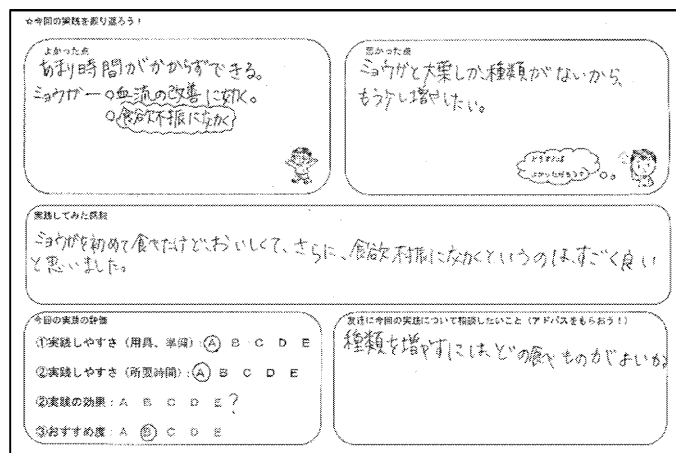 ☆今回の実践を振り返ろう!
よかった点
あまり時間がかからずできる。
ミョウガー○血流の改善に効く。
○食欲不振に効く
悪かった点
ミョウガと大葉しか、種類がないから、
もう少し増やしたい。
どうすれば
よかっただろう?
実践してみた感想
ミョウガを初めて食べたけど、おいしくて、さらに、食欲不振に効くというのは、すごく良い
と思いました。
今回の実践の評価
①実践しやすさ(用具、準備):A B C D E
②実践しやすさ(所要時間):A B C D E
②実践の効果:A B C D E ?
③おすすめ度:A B C D E
友達に今回の実践について相談したいこと(アドバスをもらおう!)
種類を増やすには、どの食べものがよいか。